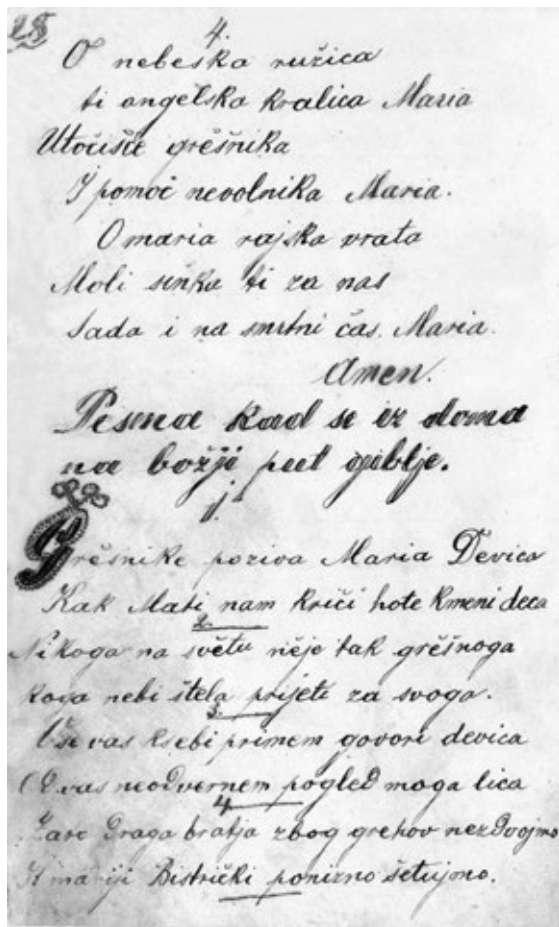 28
4.
O nebeska ružica
ti angelska kralica Maria
Utočište grěšnika
I pomoć nevolnika Maria.
O maria rajska vrata
Moli sinka ti za nas
Sada i na smrtni čas. Maria.
Amen.
Pesma kad se iz doma
na božji put giblje.
1.
Grěšnike poziva Maria Devica
Kak Mati nam kriči hote kmeni deca
2.
Nikoga na světu něje tak grěšnoga
koga nebi štela prijeti za svoga.
3.
Vse vas ksebi primem govori devica
Od vas neodvernem pogled moga lica
4.
Zato draga bratja zbog grehov nezdvojmo
K mariji Bistrički ponizno šetujmo.